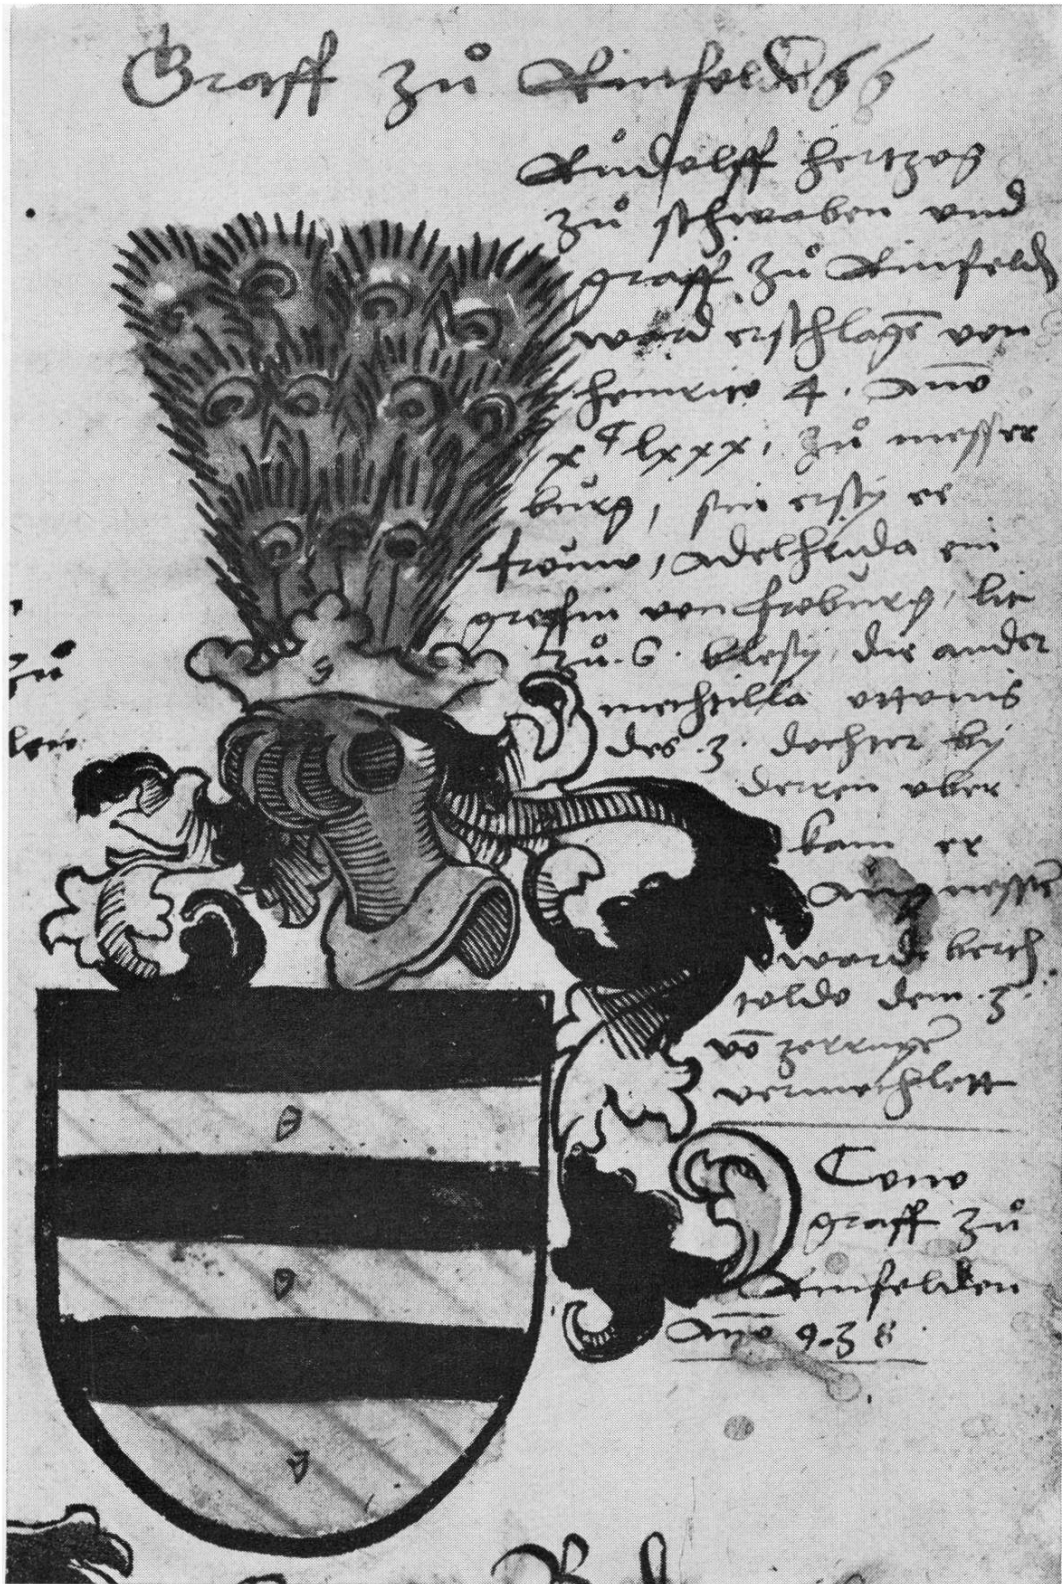 Graff zů Rinfelden
Růdolff hertzog
zů schwaben vnd
graff zů Rinfeld
ward erschlagē von
heinrico 4. Anno
lxxx, zů messer
burg, sin ersty ee
frouw, Adelheida ein
greffin von froburg, lit
zů. S. blesy, die ander
mechtilla ottonis
des .3. dochter by
derren vber
kam er
Angnessē
ward berch
toldo dem .3.
vō zerringē
vermechlett
Cono
graff zů
Rinfelden
Anno 938.
zů